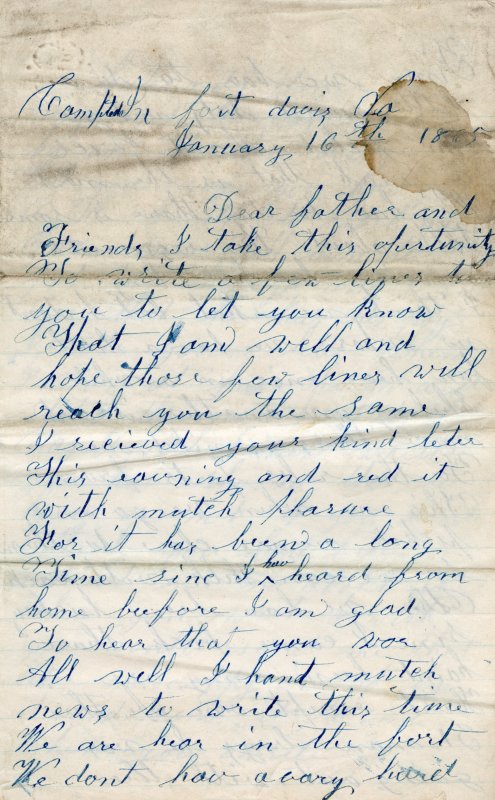 Camp In fort davis Va
January, 16th 1865
Dear father and
Friends I take this opertunity
To write a few lines to
you to let you know
That I am well and
hope those few lines will
reach you the same
I recieved your kind leter
This eavning and red it
with mutch plasure
For it has been a long
Time sinc I hav heard from
home beefore I am glad
To hear that you war
All well I hant mutch
news to write this time
We are hear in the fort
We dont hav avary hard